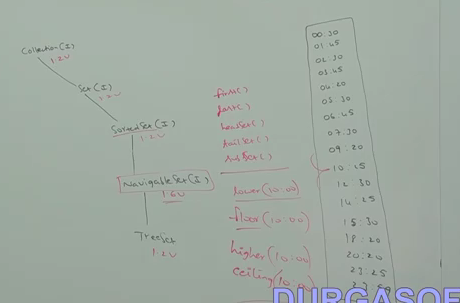 Collection(I)
1.2V
Set(I)
1.2V
SortedSet(I)
1.2V
NavigableSet(I)
1.6V
TreeSet
1.2V
first()
last()
headSet()
tailSet()
subSet()
lower(10:00)
floor(10:00)
higher(10:00)
ceiling(10:00)
00:30
01:45
02:30
03:45
04:20
05:30
06:45
07:30
09:20
10:15
12:30
14:25
15:30
18:20
20:20
23:25
23:59
DURGASOF